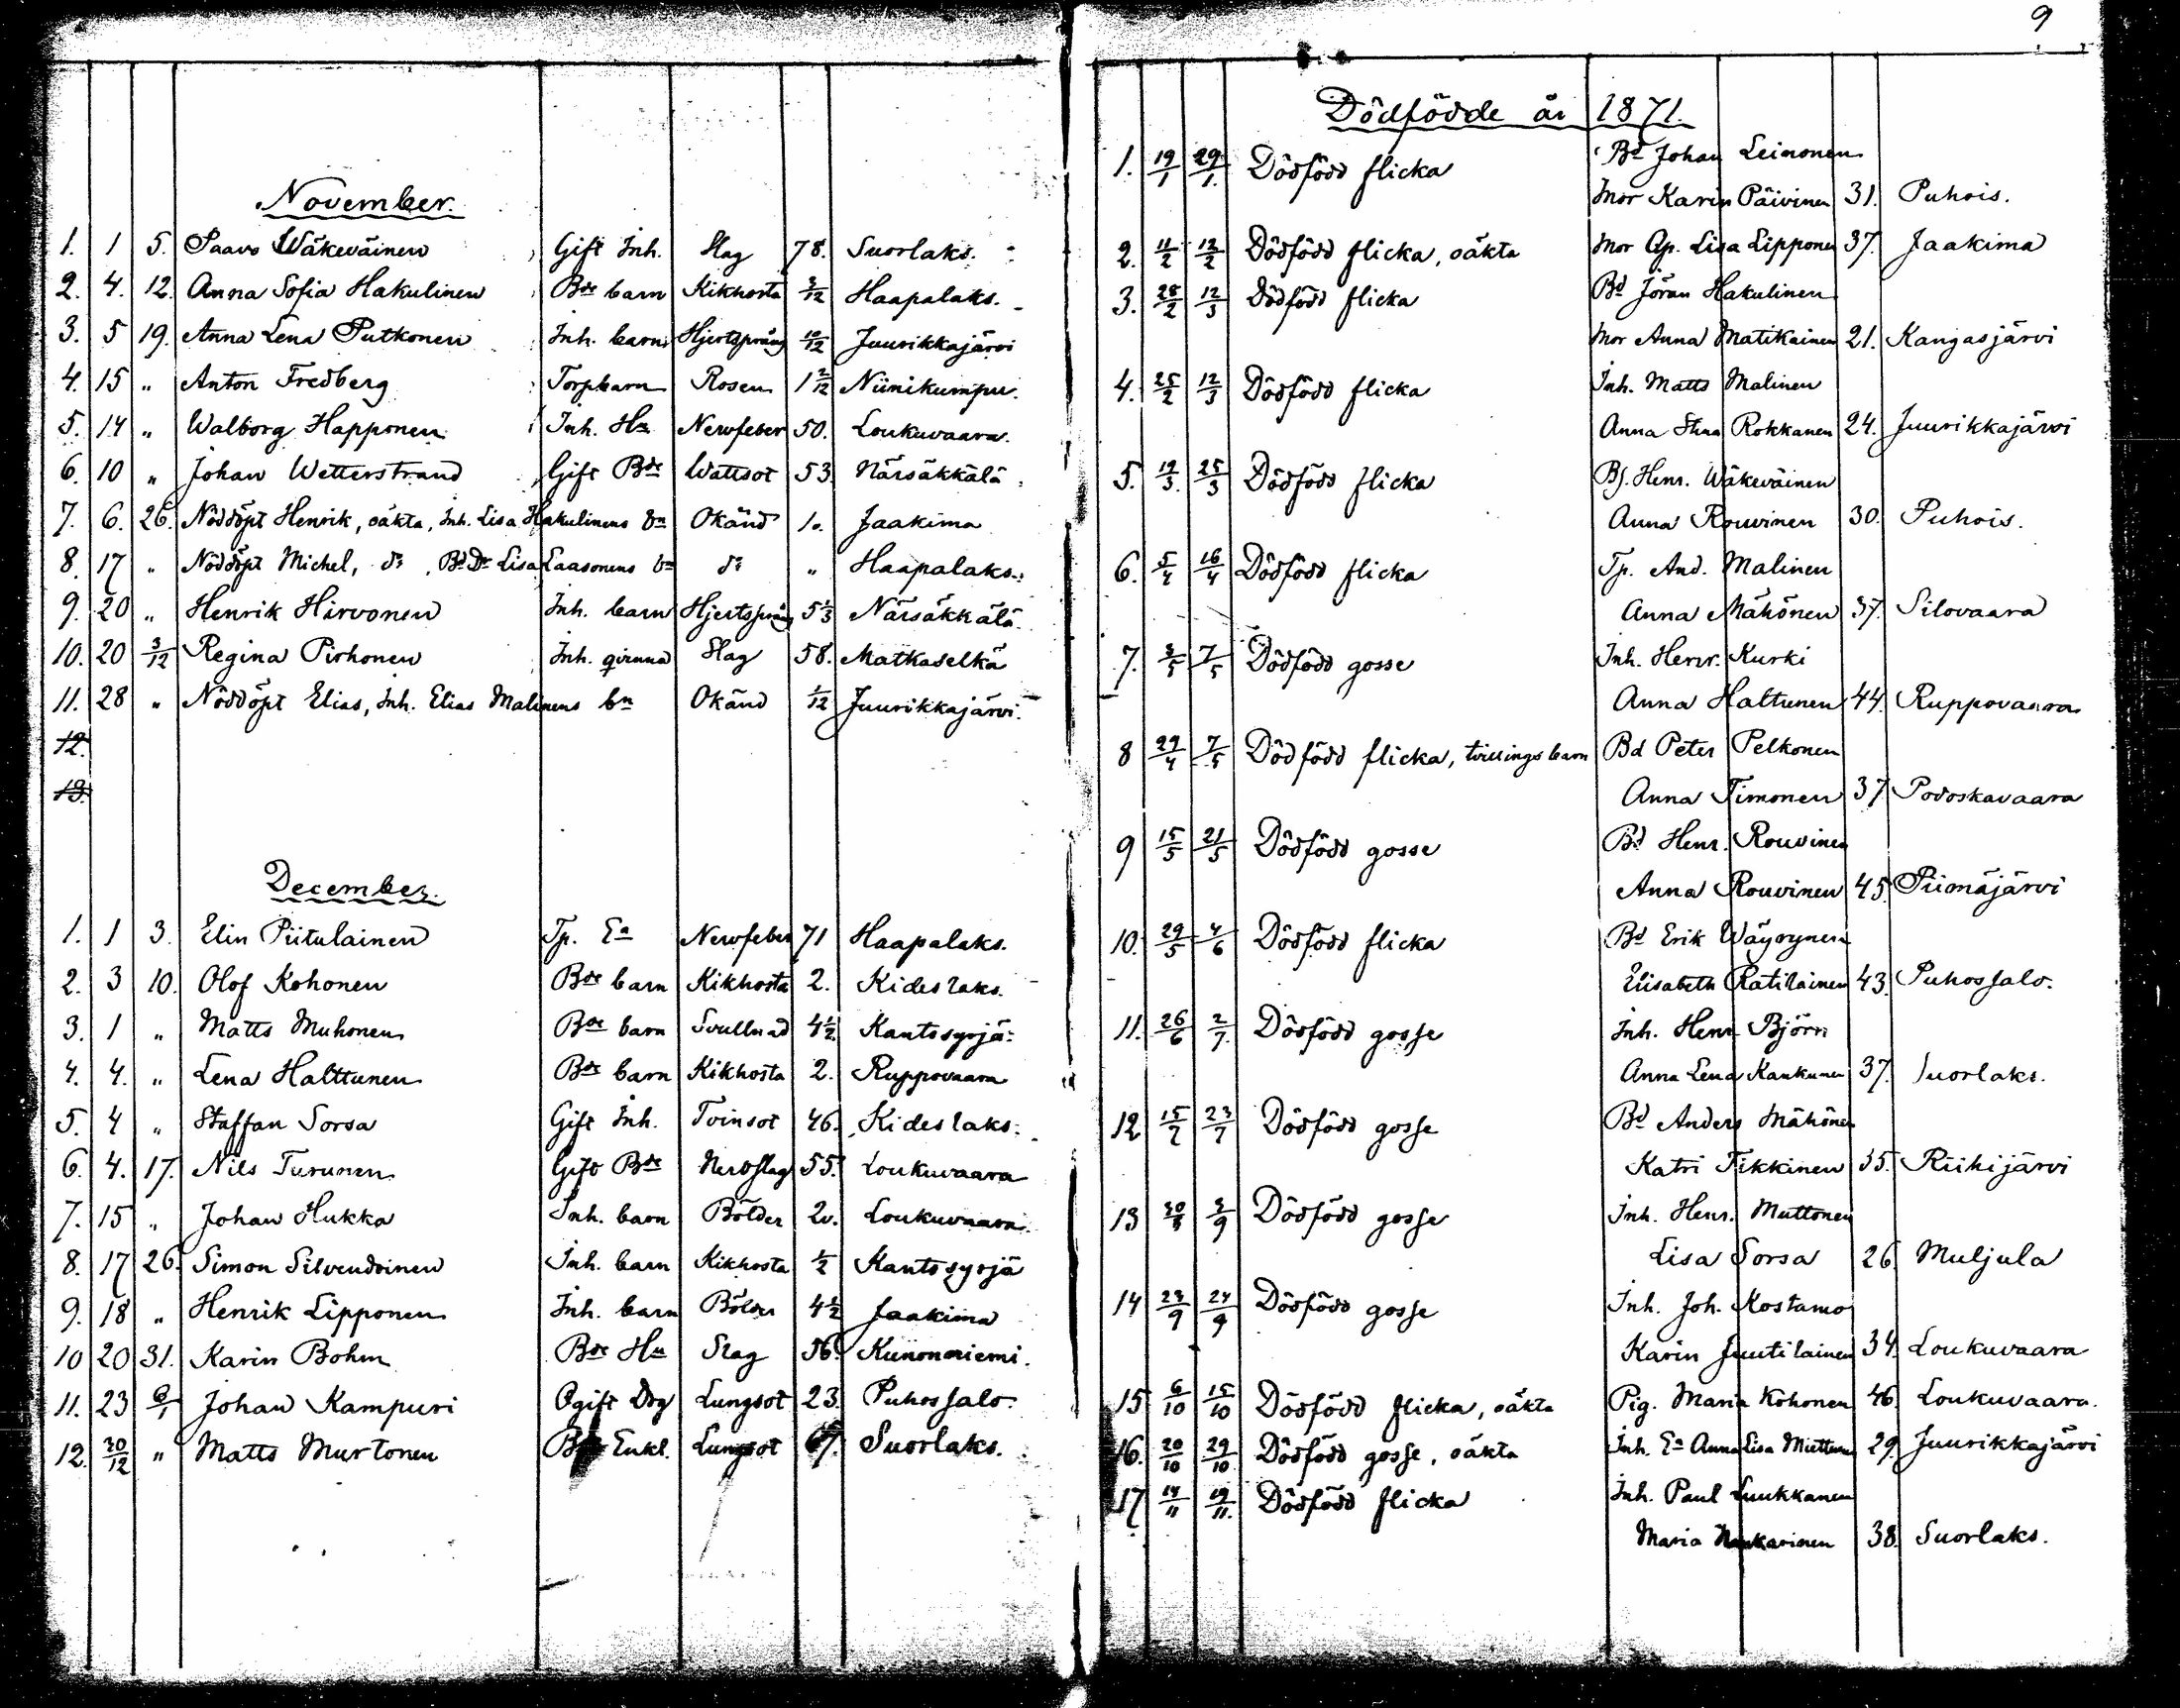 November.
1. 1 5. Paavo Wäkeväinen Gift Inh. Slag 78. Suorlaks.
2. 4. 12. Anna Sofia Hakulinen Bde barn Kikhosta 3/12 Haapalaks.
3. 5 19. Anna Lena Putkonen Inh. barn Hjertsprång 10/12 Juurikkajärvi
4. 15 " Anton Fredberg Torpbarn Rosen 1 2/12 Niinikumpu.
5. 14 " Walborg Happonen Inh. Ha Nervfeber 50. Loukuvaara.
6. 10 " Johan Wetterstrand Gift Bde Wattsot 53. Närsäkkälä
7. 6. 26. Nöddöpt Henrik, oäkta, Inh. Lisa Hakulinens bn Okänd 1. Jaakima
8. 17 " Nöddöpt Michel, do, Bd Dr Lisa Laasonens bn do " Haapalaks.
9. 20 " Henrik Hirvonen Inh. barn Hjertsprång 5 1/3 Närsäkkälä
10. 20 3/12 Regina Pirhonen Inh. qvinna Slag 58. Matkaselkä
11. 28 " Nöddöpt Elias, Inh. Elias Malinens bn Okänd 1/12 Juurikkajärvi.
12.
13.
December.
1. 1 3. Elin Piitulainen Tp. Ea Nervfeber 71 Haapalaks.
2. 3 10. Olof Kohonen Bde barn Kikhosta 2. Kideslaks.
3. 1 " Matts Muhonen Bde barn Svullnad 4 1/2. Kantosyrjä
4. 4. " Lena Halttunen Bde barn Kikhosta 2. Ruppovaara
5. 4 " Staffan Sorsa Gift Inh. Tvinsot 46. Kideslaks.
6. 4. 17. Nils Turunen Gift Bde Nervslag 55. Loukuvaara
7. 15 " Johan Hukka Inh. barn Bölder Loukuvaara
8. 17 26. Simon Silvendoinen Inh. barn Kikhosta 1/2 Kantosyrjä
9. 18 " Henrik Lipponen Inh. barn Bölder 4 1/2 Jaakima
10 20 31. Karin Bohm Bde Hu Slag 56. Kunonniemi.
11. 23 Johan Kampuri Ogift Drg Lungsot 23. Puhossalo.
12. 30/12 " Matts Murtonen Enkl. Lungsot Suorlaks.
9
Dödfödde år 1871.
1. 19/1 29/1. Dödfödd flicka Bd Johan Leinonen
Mor Karin Päivinen 31. Puhois.
2. 11/2 12/2 Dödfödd flicka, oäkta Mor Lisa Lipponen 37. Jaakima
3. 28/2 12/3 Dödfödd flicka Bd Jöran Hakulinen
Mor Anna Matikainen 21. Kangasjärvi
4. 25/2 12/3 Dödfödd flicka Inh. Matts Malinen
Anna Stina Rokkanen 24. Juurikkajärvi
5. 19/3. 25/3 Dödfödd flicka Bs. Henr. Wäkeväinen
Anna Rouvinen 30. Puhois.
6. 5/4 16/4 Dödfödd flicka Tp. And. Malinen
Anna Mähönen 37. Silovaara
7. 3/5 7/5 Dödfödd gosse Inh. Henr. Kurki
Anna Haltunen 44. Ruppovaara
8 29/4 7/5 Dödfödd flicka, tvillingsbarn Bd Peter Pelkonen
Anna Timonen 37 Podoskavaara
9 15/5 21/5 Dödfödd gosse Bd Henr. Rouvinen
Anna Rouvinen 45. Piimäjärvi
10. 29/5 4/6 Dödfödd flicka Bd Erik Wäyrynen
Elisabeth Ratilainen 43. Puhossalo.
11. 26/6 2/7. Dödfödd gosse Inh. Henr Björn
Anna Lena Kaukunen 37. Suorlaks.
12 15/7 23/7 Dödfödd gosse Bd Anders Mähönen
Katri Tikkinen 35. Riihijärvi
13 30/8 3/9 Dödfödd gosse Inh. Henr. Muttonen
Lisa Sorsa 26. Muljula
14 23/9 24/9 Dödfödd gosse Inh. Joh. Kostamo
Karin Juutilainen 34. Loukuvaara
15 6/10 15/10 Dödfödd flicka, oäkta Pig. Maria Kohonen 46. Loukuvaara.
16. 20/10 29/10 Dödfödd gosse, oäkta Inh. Ea Anna Lisa Miettinen 29. Juurikkajärvi
17 14/11 19/11. Dödfödd flicka Inh. Paul Luukkanen
Maria 38. Suorlaks.